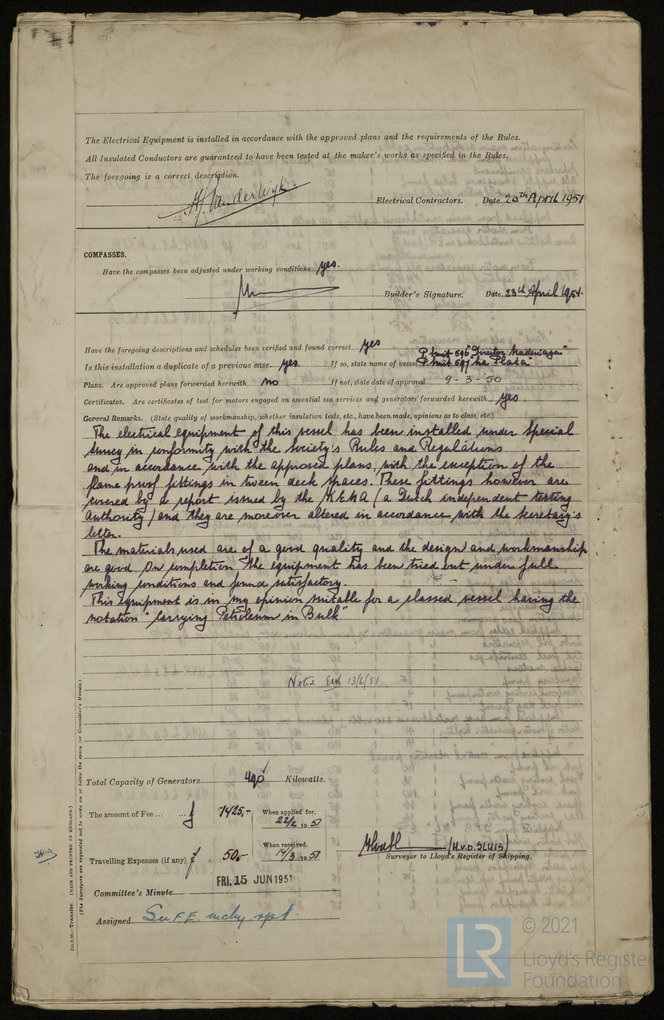 The Electrical Equipment is installed in accordance with the approved plans and the requirements of the Rules.
All Insulated Conductors are guaranteed to have been tested at the maker's works as specified in the Rules.
The foregoing is a correct description.
Electrical Contractors. Date 20th April 1951
COMPASSES.
Have the compasses been adjusted under working conditions yes.
Builder's Signature. Date 23th April 1951.
Have the foregoing descriptions and schedules been verified and found correct yes
Is this installation a duplicate of a previous case yes. If so, state name of vessel P. Smit 596 "Director Madariaga" P. Smit 597 "La Plata"
Plans. Are approved plans forwarded herewith no If not, state date of approval 9-3-50
Certificates. Are certificates of test for motors engaged on essential sea services and generators forwarded herewith yes
General Remarks. (State quality of workmanship, whether insulation tests, etc., have been made, opinions as to class, etc.)
The electrical equipment of this vessel has been installed under Special
Survey in conformity with the Society's Rules and Regulations
and in accordance with the approved plans, with the exception of the
flame proof fittings in tween deck spaces. These fittings however are
covered by a report issued by the K.E.M.A. (a Dutch independent testing
Authority) and they are moreover altered in accordance with the Secretary's
letter.
The materials used are of a good quality and the design and workmanship
are good. On completion the equipment has been tried out under full
working conditions and found satisfactory.
This equipment is in my opinion suitable for a classed vessel having the
notation "Carrying Petroleum in Bulk"
Noted 13/6/51
Total Capacity of Generators 490 Kilowatts.
The amount of Fee ... ... £ 1425,- When applied for, 22/6 1951
Travelling Expenses (if any) £ 50,- When received, 1951
(H.v.d. SLUIS)
Surveyor to Lloyd's Register of Shipping.
FRI. 15 JUN 1951
Committee's Minute
Assigned See F.E. mchy. rpt.
Transfer. (MADE AND PRINTED IN ENGLAND.)
(The Surveyors are requested not to write on or below the space for Committee's Minute.)
© 2021
LR Lloyd's Register
Foundation